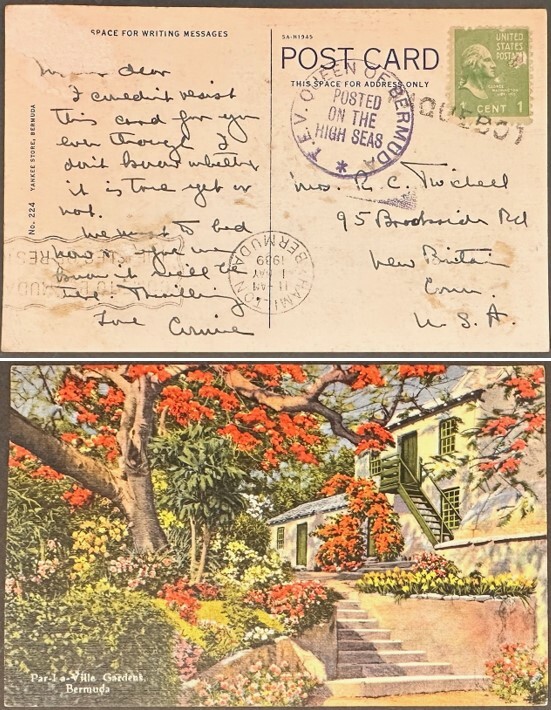 SPACE FOR WRITING MESSAGES
dear
I couldn't resist
this card for you
even though I
don't know whether
it is true yet or
not.
We went to bed
now & for we
know it we'll be
Thrilling
Love
No. 224 YANKEE STORE, BERMUDA
SA-H1945
POST CARD
THIS SPACE FOR ADDRESS ONLY
T.E.V. QUEEN OF BERMUDA
POSTED
ON THE
HIGH SEAS
UNITED
STATES
POSTAGE
1 CENT 1
PAQUEBOT
HAMILTON
11 AM
1 MAY
1939
BERMUDA
Mrs. R. C. Twichell
95 Brookside Rd
New Britain
Conn.
U. S. A.
Par-La-Ville Gardens,
Bermuda